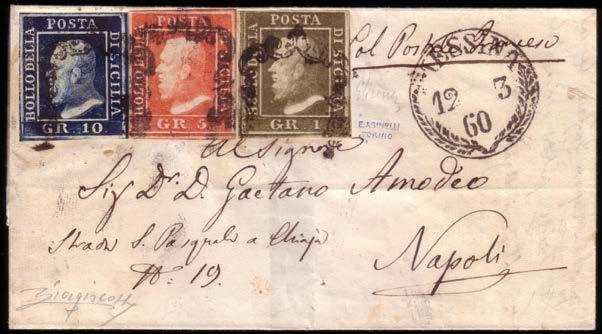 POSTA
BOLLO DELLA
DI SICILIA
GR. 10
POSTA
BOLLO DELLA
DI SICILIA
GR. 5
POSTA
BOLLO DELLA
DI SICILIA
GR. 1
Col Postale Francese
MESSINA
12 3
60
E. ASINELLI
TORINO
Al Signore
Sig Dr. D. Gaetano Amodeo
Strada S. Pasquale a Chiaja
No: 19.
Napoli